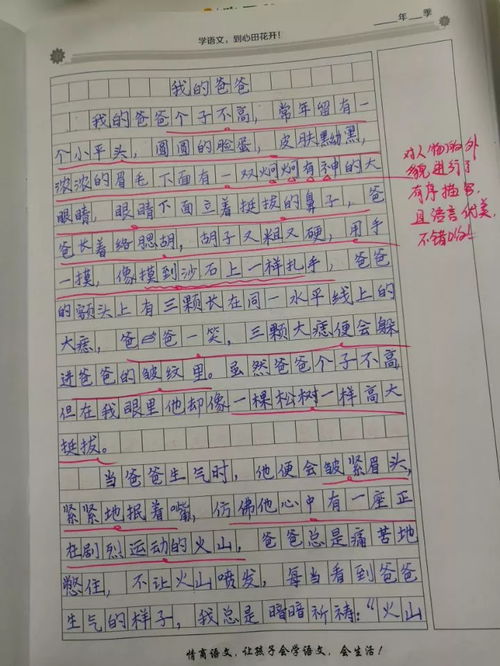 学语文，到心田花开！
年 季
我的爸爸
我的爸爸个子不高，常年留有一
个小平头，圆圆的脸蛋，皮肤黝黑，
淡淡的眉毛下面有一双炯炯有神的大
眼睛，眼睛下面立着挺拔的鼻子，爸
爸长着络腮胡，胡子又粗又硬，用手
一摸，像摸到沙石上一样扎手，爸爸
的额头上有三颗长在同一水平线上的
大痣，爸爸一笑，三颗大痣便会躲
进爸爸的皱纹里。虽然爸爸个子不高
但在我眼里他却像一棵松树一样高大
挺拔。
当爸爸生气时，他便会皱紧眉头，
紧紧地抿着嘴，仿佛他心中有一座正
在剧烈运动的火山，爸爸总是痛苦地
憋住，不让火山喷发，每当看到爸爸
生气的样子，我总是暗暗祈祷：“火山
对人物的外
貌进行了
有序描写，
且语言优美，
不错哟！
情商语文，让孩子会学语文，会生活！